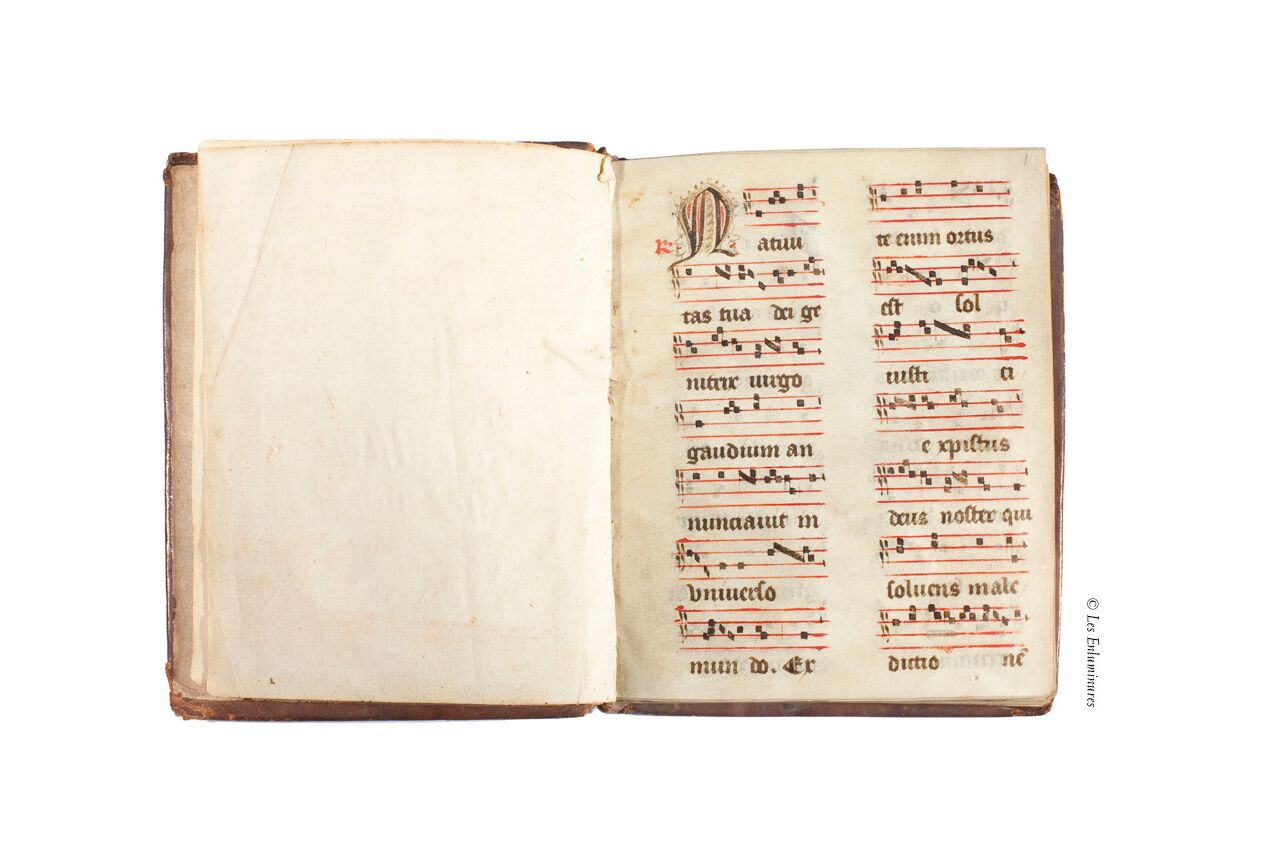 1
R Natiui
tas tua dei ge
nitrix uirgo
gaudium an
nunciauit in
vniuerso
mun do. Ex
te enim ortus
est sol
iusti ci
e xpistus
deus noster qui
soluens male
dictio nē
© Les Enluminures